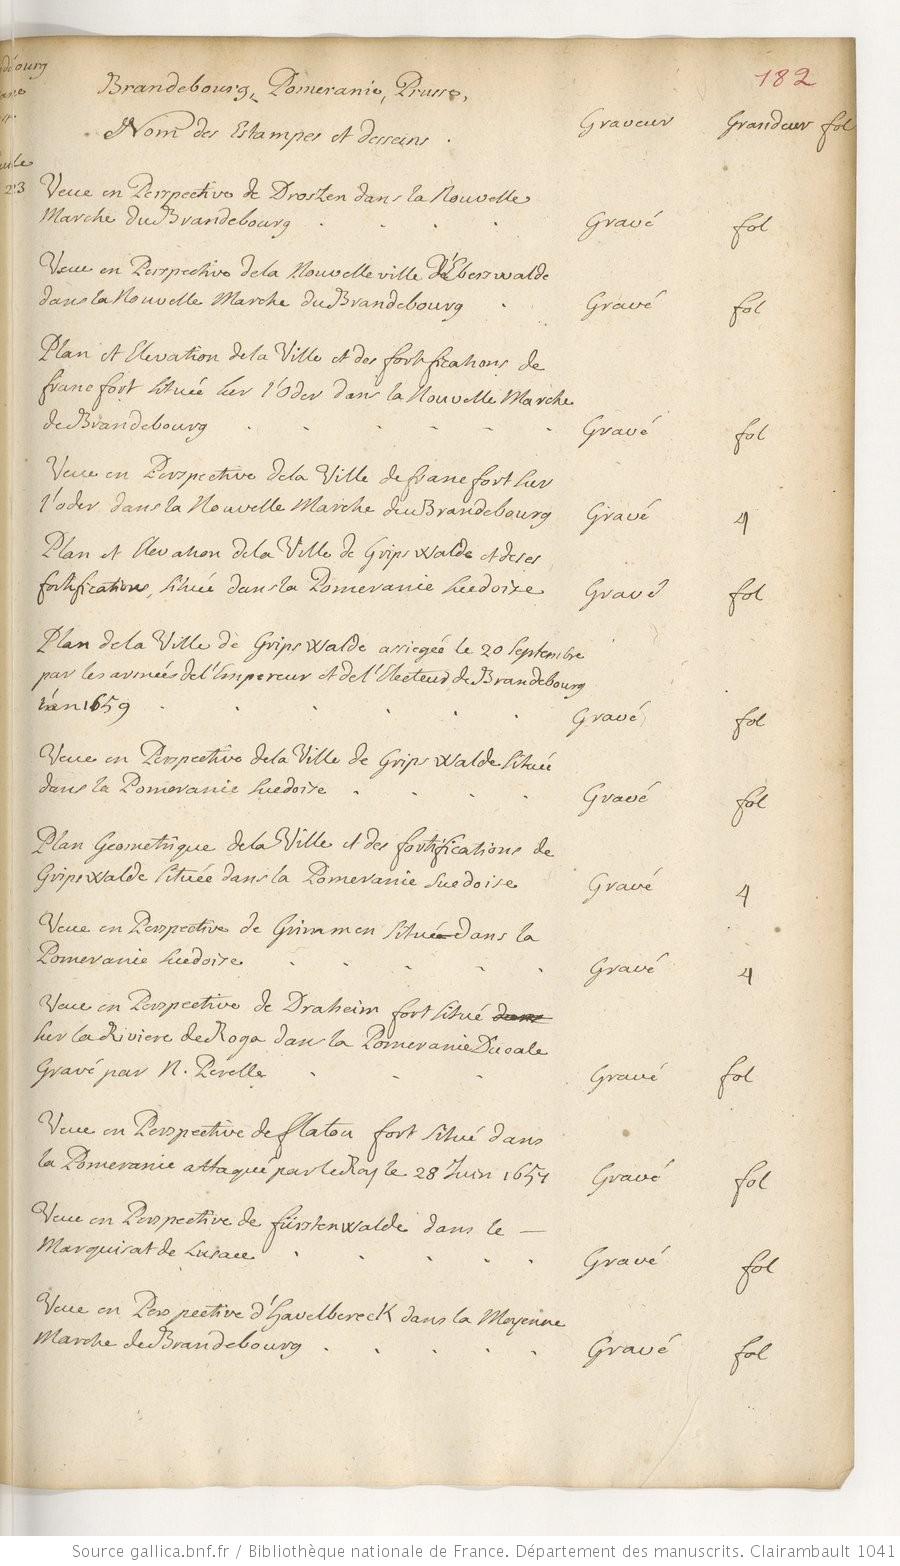 182
Brandebourg, Pomeranie, Prusse,
Nom des Estampes et desseins . Graveur Grandeur fol
23
Veue en Perspective de Drossen dans la Nouvelle
Marche du Brandebourg . . . . Gravé fol
Veue en Perspective de la Nouvelle ville d'Eberswalde
dans la Nouvelle Marche du Brandebourg . Gravé fol
Plan et Elevation de la Ville et des fortifications de
francfort située sur l'Oder dans la Nouvelle Marche
de Brandebourg . . . . . . Gravé fol
Veue en Perspective de la Ville de francfort sur
l'oder dans la Nouvelle Marche du Brandebourg Gravé 4
Plan et Elevation de la Ville de Gripswalde et de ses
fortifications, située dans la Pomeranie suedoise Gravé fol
Plan de la Ville de Gripswalde assiegée le 20 septembre
par les armées de l'Empereur et de l'Electeur de Brandebourg
en 1659 . . . . . . Gravé fol
Veue en Perspective de la Ville de Gripswalde située
dans la Pomeranie suedoise . . . . Gravé fol
Plan Geometrique de la Ville et des fortifications de
Gripswalde située dans la Pomeranie suedoise Gravé 4
Veue en Perspective de Grimmen située dans la
Pomeranie suedoise . . . . . Gravé 4
Veue en Perspective de Draheim fort situé dans
sur la Riviere de Roga dans la Pomeranie Ducale
Gravé par N. Perelle . . . Gravé fol
Veue en Perspective de flatou fort situé dans
la Pomeranie attaqué par le Roy le 28 Juin 1657 Gravé fol
Veue en Perspective de fürstenwalde dans le —
Marquisat de Lusace . . . . . Gravé fol
Veue en Perspective d'Havelbereck dans la Moyenne
Marche de Brandebourg . . . . . Gravé fol
Source gallica.bnf.fr / Bibliothèque nationale de France. Département des manuscrits. Clairambault 1041